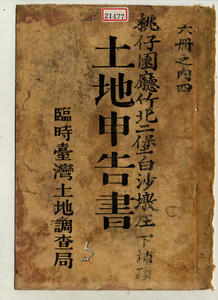 21477
六冊之內四
桃仔園廳竹北二堡白沙墩庄下埔頂
土地申告書
臨時臺灣土地調查局